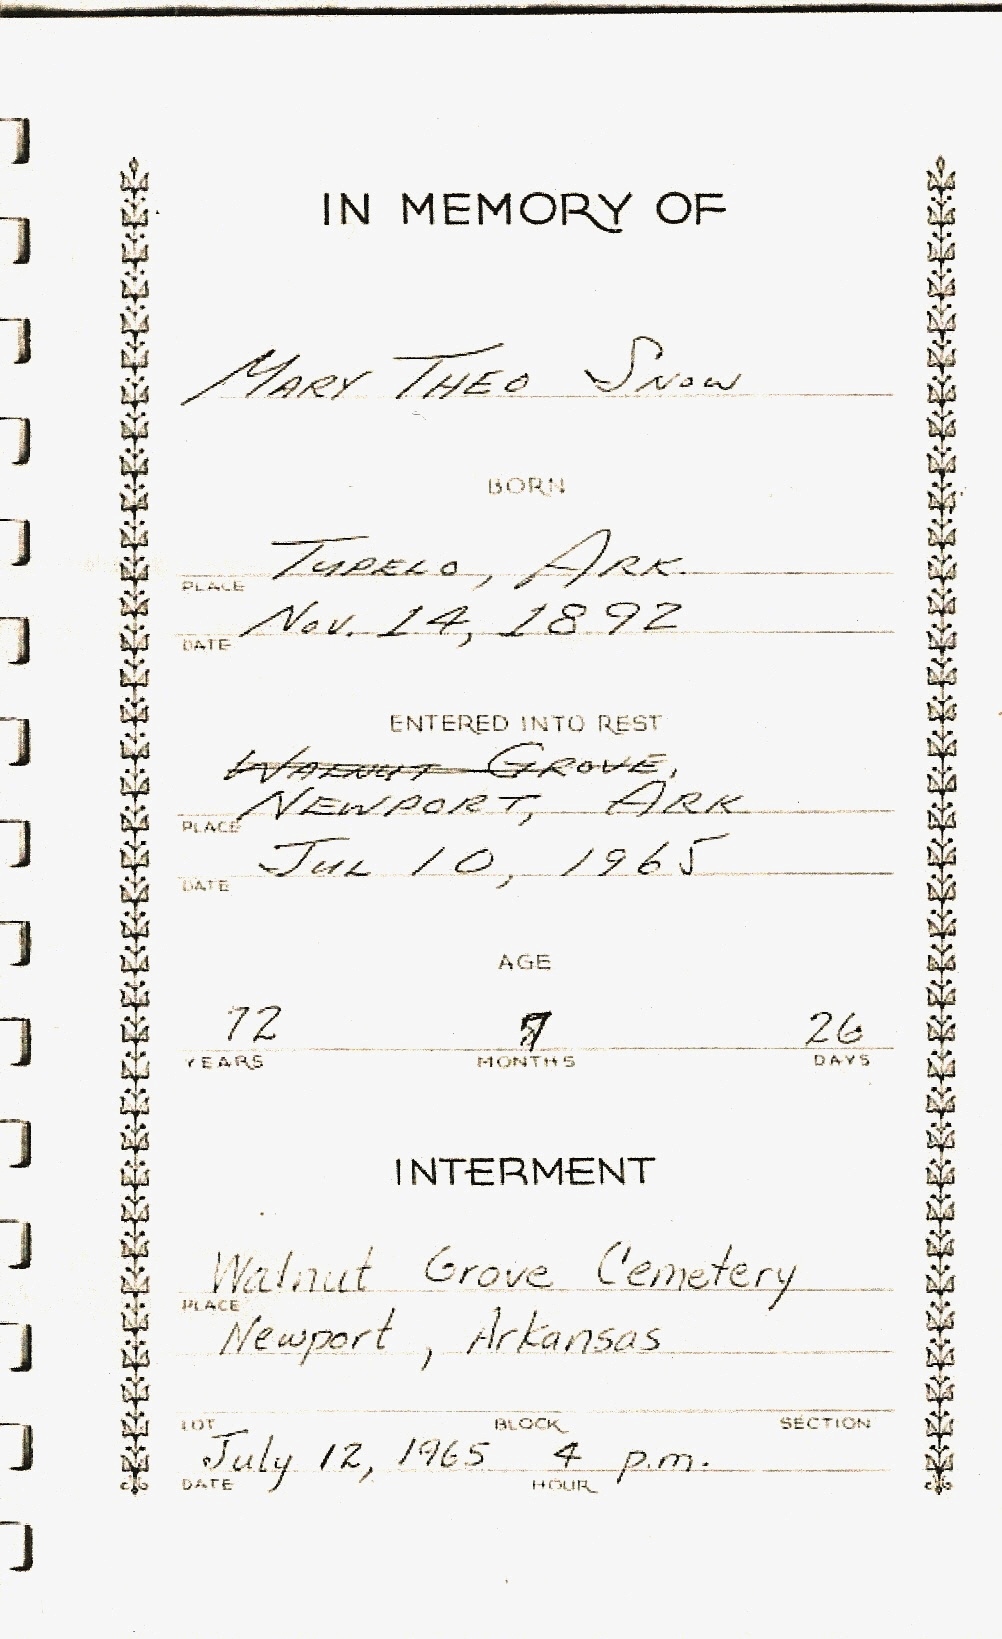 IN MEMORY OF
MARY THEO SNOW
BORN
TUPELO, ARK.
PLACE
NOV. 14, 1892
DATE
ENTERED INTO REST
WALNUT GROVE,
NEWPORT, ARK
PLACE
JUL 10, 1965
DATE
AGE
72 7 26
YEARS MONTHS DAYS
INTERMENT
Walnut Grove Cemetery
PLACE
Newport, Arkansas
LOT BLOCK SECTION
July 12, 1965 4 p.m.
DATE HOUR